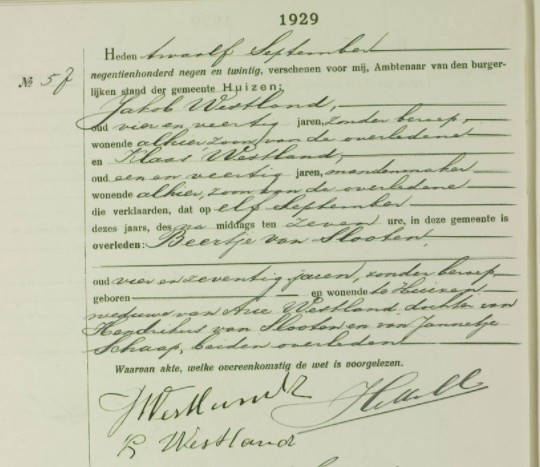 1929
Heden twaalf September
No 57
negentienhonderd negen en twintig, verschenen voor mij, Ambtenaar van den burger-
lijken stand der gemeente Huizen:
Jakob Westland,
oud vier en veertig jaren, zonder beroep,
wonende alhier, zoon van de overledene
en Klaas Westland,
oud een en veertig jaren, mandenmaker
wonende alhier, zoon van de overledene
die verklaarden, dat op elf September
dezes jaars, des na middags ten zeven ure, in deze gemeente is
overleden: Beertje van Slooten,
oud vier en zeventig jaren, zonder beroep
geboren en wonende te Huizen
weduwe van Arie Westland, dochter van
Hendrikus van Slooten en van Jannetje
Schaap, beiden overleden
Waarvan akte, welke overeenkomstig de wet is voorgelezen.
J Westland
K Westland